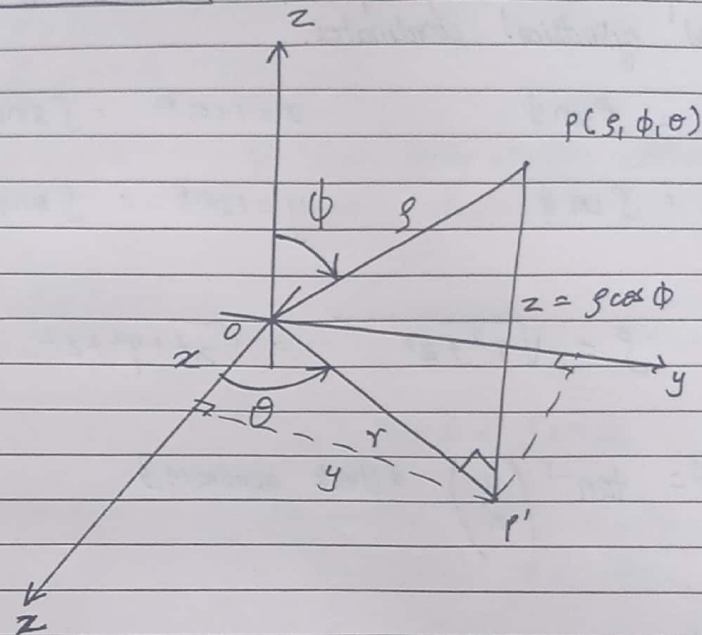 z
P(ρ, ϕ, θ)
ϕ
ρ
z = ρcos ϕ
O
x
y
θ
r
y
P'
z